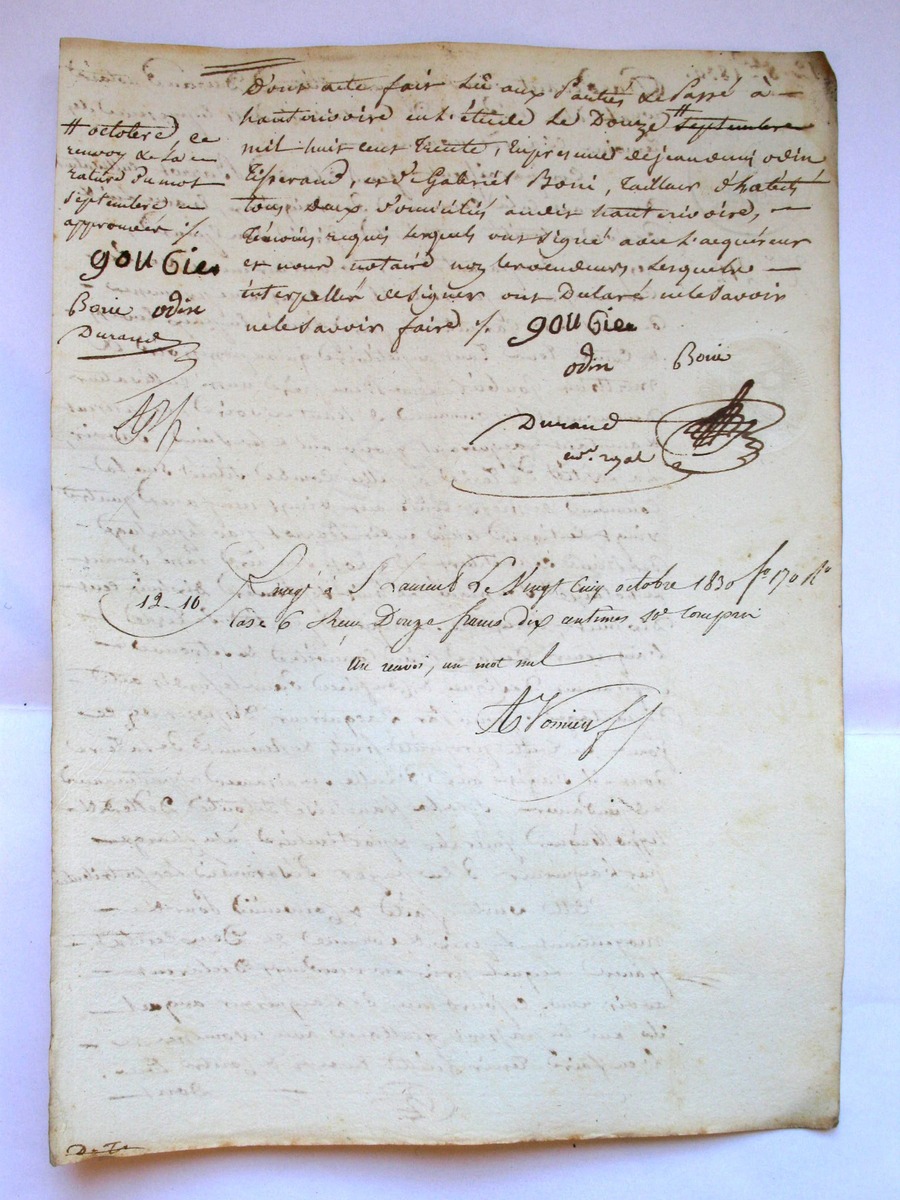 Dont acte fait Lu aux Parties & Passé à —
hauterivoire en l'étude Le Douze # septembre
mil huit cent Trente, En presence de jean denis odin
Tisserand, et Sr. Gabriel Boni, Tailleur d'habits
tous Deux Domiciliés audit hauterivoire, —
Témoins requis lesquels ont signé avec l'acquéreur
et nous notaire non les vendeurs, lesquels —
interpellés de signer ont Déclaré ne le savoir
ne le savoir faire %.
# octobre ce
renvoy & la
rature du mot
septembre
approuvés %.
gouGie
Bonie odin
Durand
gouGie
odin Bonie
Durand
not. royal
12-10
Enregé à St Laurent Le Vingt Cinq octobre 1830 fo. 170 Ro
Case 6 Reçu Douze francs dix centimes 10e compris
un renvoi, un mot nul